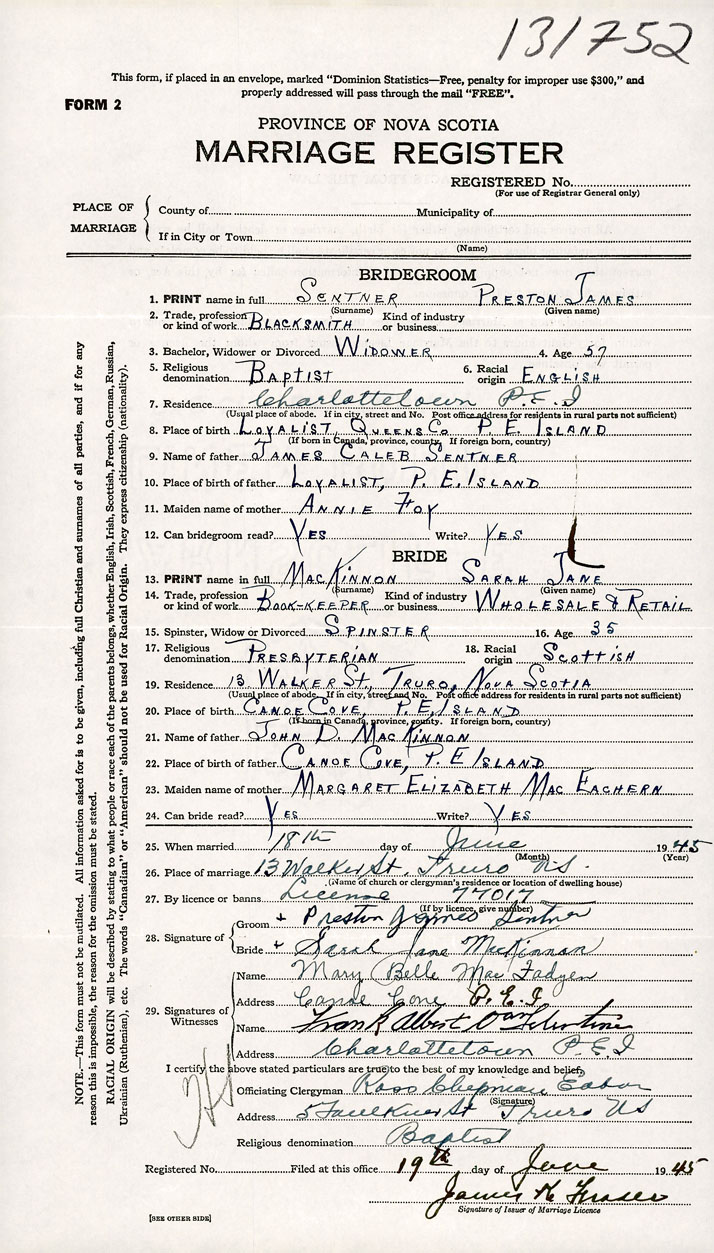 131752
This form, if placed in an envelope, marked "Dominion Statistics—Free, penalty for improper use $300," and
properly addressed will pass through the mail "FREE".
FORM 2
PROVINCE OF NOVA SCOTIA
MARRIAGE REGISTER
REGISTERED No.
(For use of Registrar General only)
PLACE OF MARRIAGE
County of Municipality of
If in City or Town
(Name)
BRIDEGROOM
1. PRINT name in full SENTNER PRESTON JAMES
(Surname) (Given name)
2. Trade, profession or kind of work BLACKSMITH Kind of industry or business
3. Bachelor, Widower or Divorced WIDOWER 4. Age 57
5. Religious denomination BAPTIST 6. Racial origin ENGLISH
7. Residence Charlottetown P.E.I
(Usual place of abode. If in city, street and No. Post office address for residents in rural parts not sufficient)
8. Place of birth LOYALIST, QUEENS CO P.E. ISLAND
(If born in Canada, province, county. If foreign born, country)
9. Name of father JAMES CALEB SENTNER
10. Place of birth of father LOYALIST, P.E. ISLAND
11. Maiden name of mother ANNIE FOY
12. Can bridegroom read? YES Write? YES
BRIDE
13. PRINT name in full MACKINNON SARAH JANE
(Surname) (Given name)
14. Trade, profession or kind of work BOOK-KEEPER Kind of industry or business WHOLESALE & RETAIL
15. Spinster, Widow or Divorced SPINSTER 16. Age 35
17. Religious denomination PRESBYTERIAN 18. Racial origin SCOTTISH
19. Residence 13 WALKER ST., TRURO, NOVA SCOTIA
(Usual place of abode. If in city, street and No. Post office address for residents in rural parts not sufficient)
20. Place of birth CANOE COVE, P.E. ISLAND
(If born in Canada, province, county. If foreign born, country)
21. Name of father JOHN D. MACKINNON
22. Place of birth of father CANOE COVE, P.E ISLAND
23. Maiden name of mother MARGARET ELIZABETH MAC EACHERN
24. Can bride read? YES Write? YES
25. When married 18th day of June 1945
(Month) (Year)
26. Place of marriage 13 Walker St. Truro N.S.
(Name of church or clergyman's residence or location of dwelling house)
27. By licence or banns License 77017
(If by licence, give number)
28. Signature of
Groom + Preston James Sentner
Bride + Sarah Jane MacKinnon
29. Signatures of Witnesses
Name Mary Belle MacFadyen
Address Canoe Cove P.E.I
Name Frank Albert Van
Address Charlottetown P.E.I
I certify the above stated particulars are true to the best of my knowledge and belief,
Officiating Clergyman Ross Chepman Eaton
(Signature)
Address 5 Faulkner St Truro NS
Religious denomination Baptist
Registered No. Filed at this office 19th day of June 1945
James K Fraser
Signature of Issuer of Marriage Licence
[SEE OTHER SIDE]
NOTE.—This form must not be mutilated. All information asked for is to be given, including full Christian and surnames of all parties, and if for any
reason this is impossible, the reason for the omission must be stated.
RACIAL ORIGIN will be described by stating to what people or race each of the parents belongs, whether English, Irish, Scottish, French, German, Russian,
Ukrainian (Ruthenian), etc. The words "Canadian" or "American" should not be used for Racial Origin. They express citizenship (nationality).